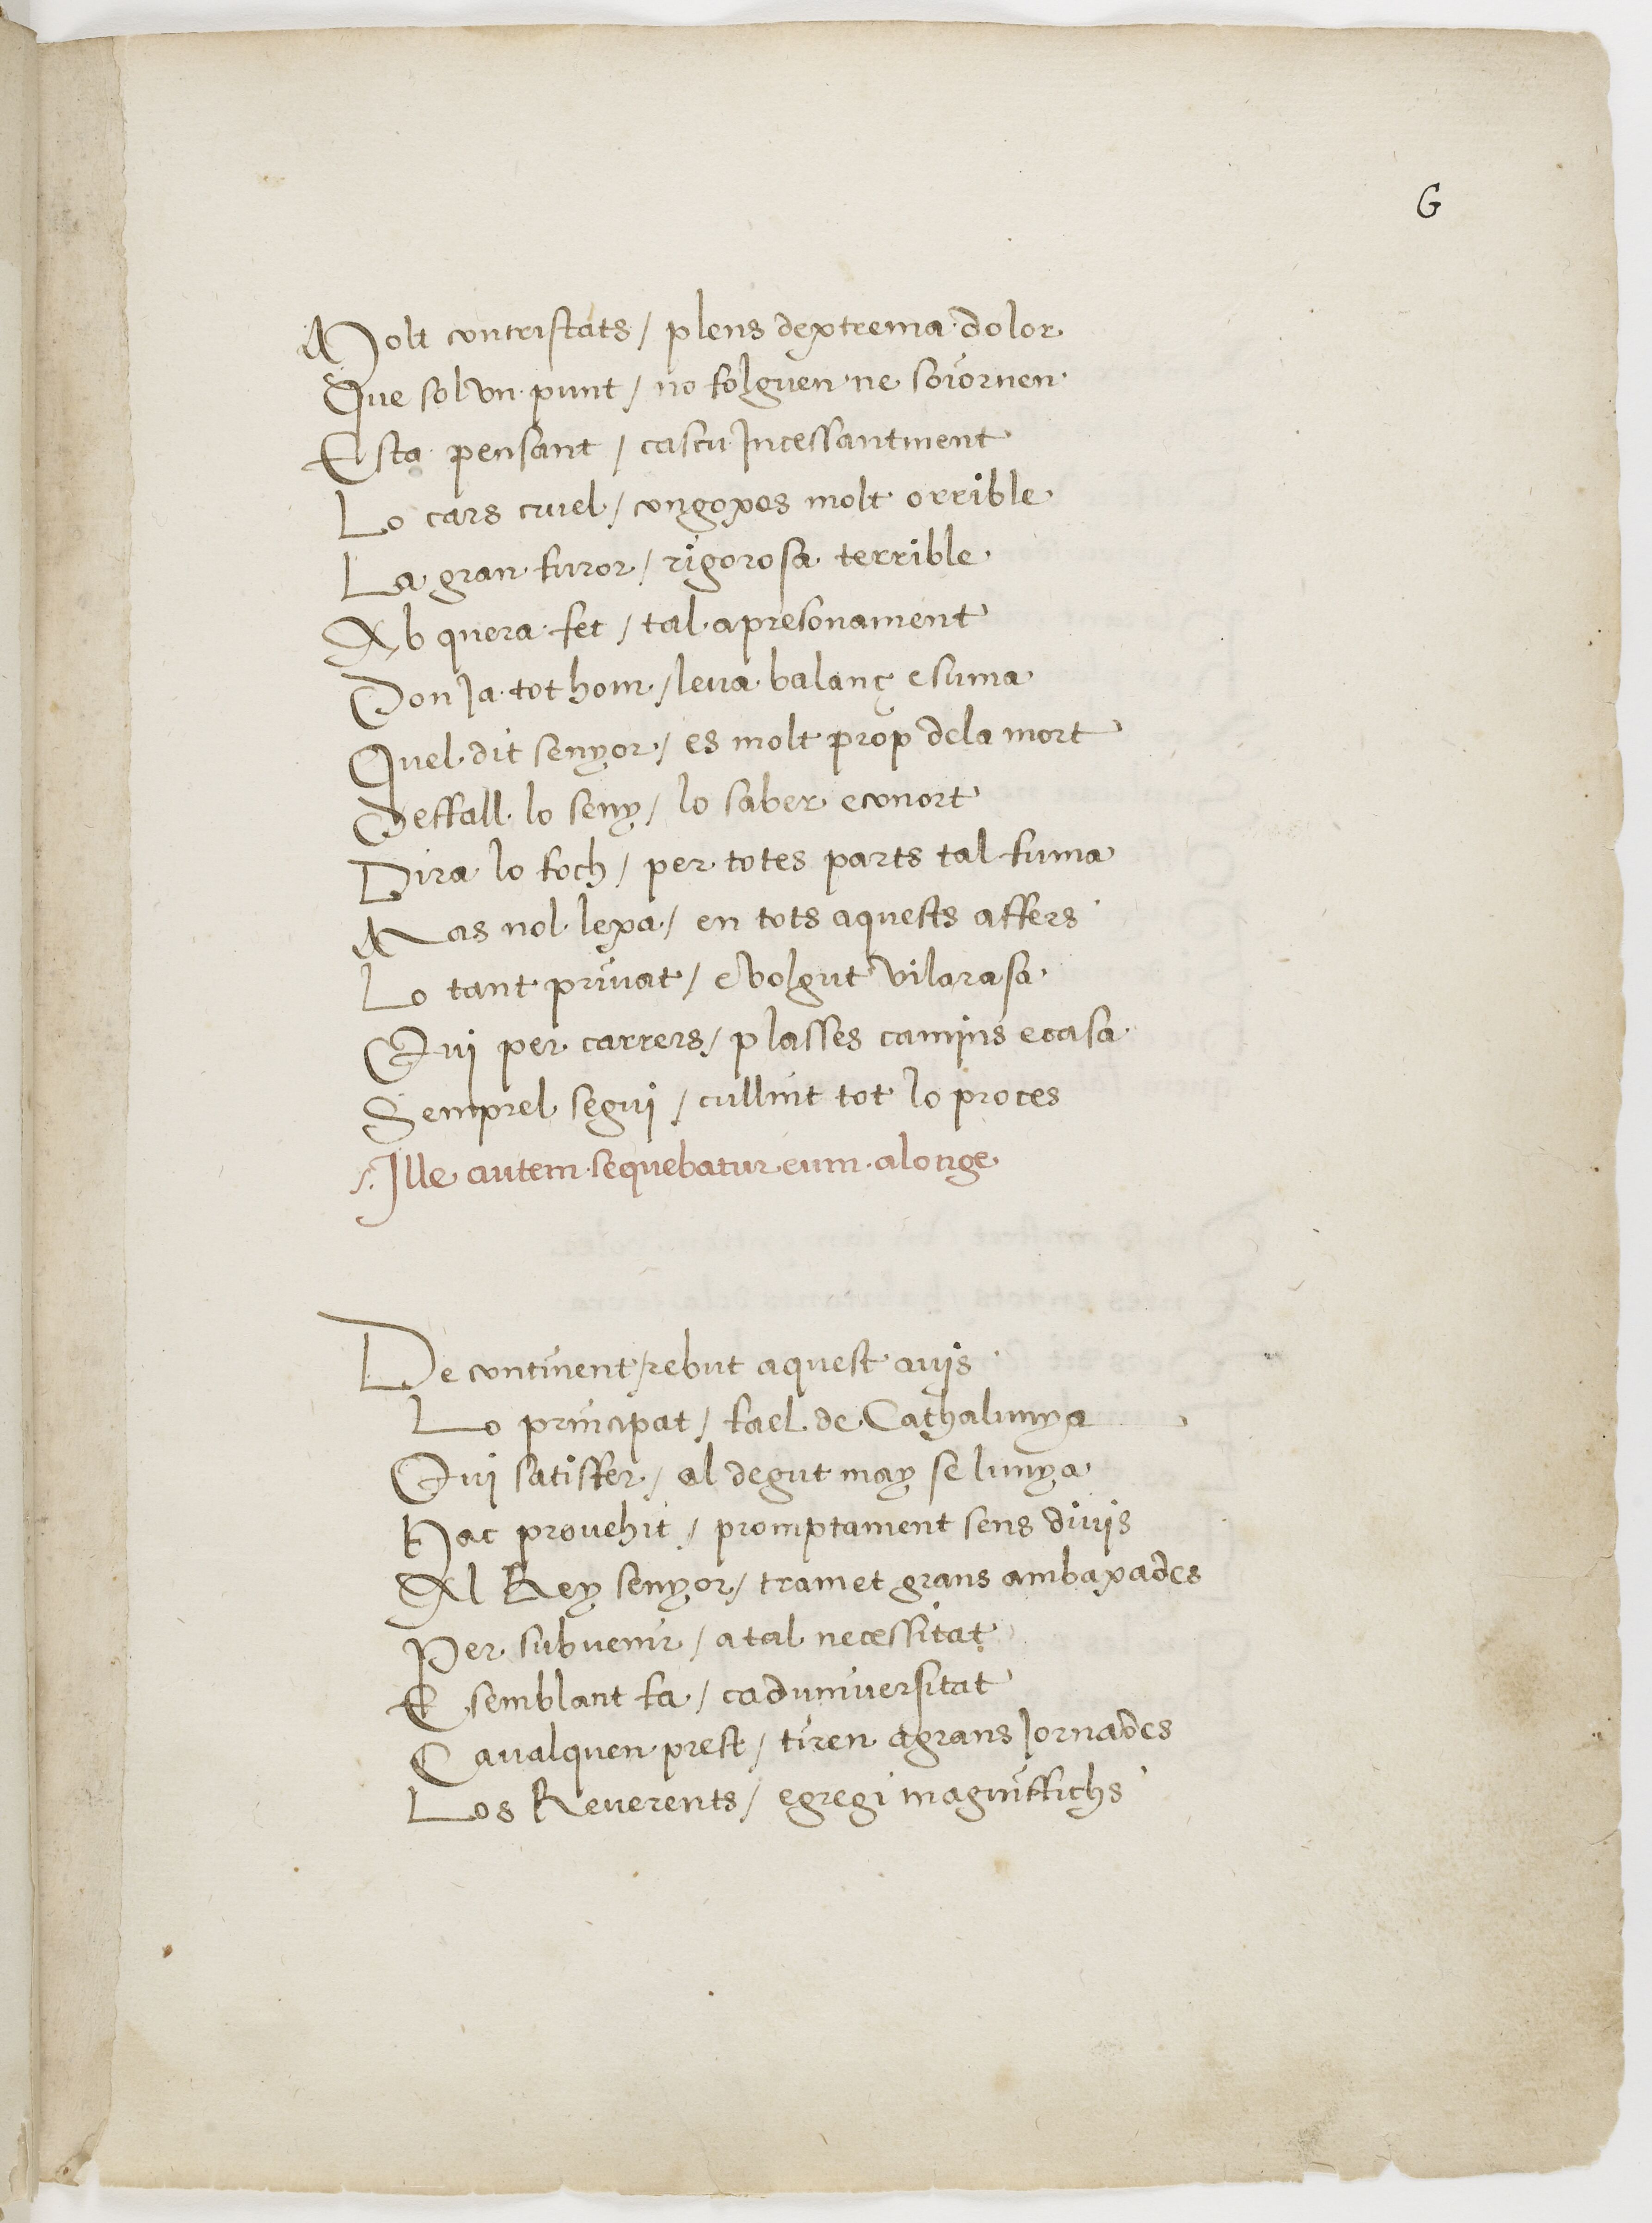 G
Molt contristats / plens dextrema dolor
Que sol vn punt / no folguen ne soiornen
Esta pensant / cascu Incessantment
Lo cars cruel / congoxos molt orrible
La gran furor / rigorosa terrible
Ab quera fet / tal apresonament
Don Ja tot hom / leua balanç e suma
Quel dit senyor / es molt prop dela mort
Deffall lo seny / lo saber e conort
Dira lo foch / per totes parts tal fuma
Mas nol lexa / en tots aquests affers
Lo tant priuat / e volgut vilarasa
Qui per carrers / plasses camins e casa
Semprel segui / cullint tot lo proces
s. Ille autem sequebatur eum alonge
De continent / rebut aquest auis
Lo principat / fael de Cathalunya
Qui satisfer / al degut may se lunya
Hac prouehit / promptament sens diuis
Al Rey senyor / tramet grans ambaxades
Per subuenir / a tal necessitat
E semblant fa / caduniuersitat
Caualquen prest / tiren a grans Jornades
Los Reuerents / egregi magniffichs